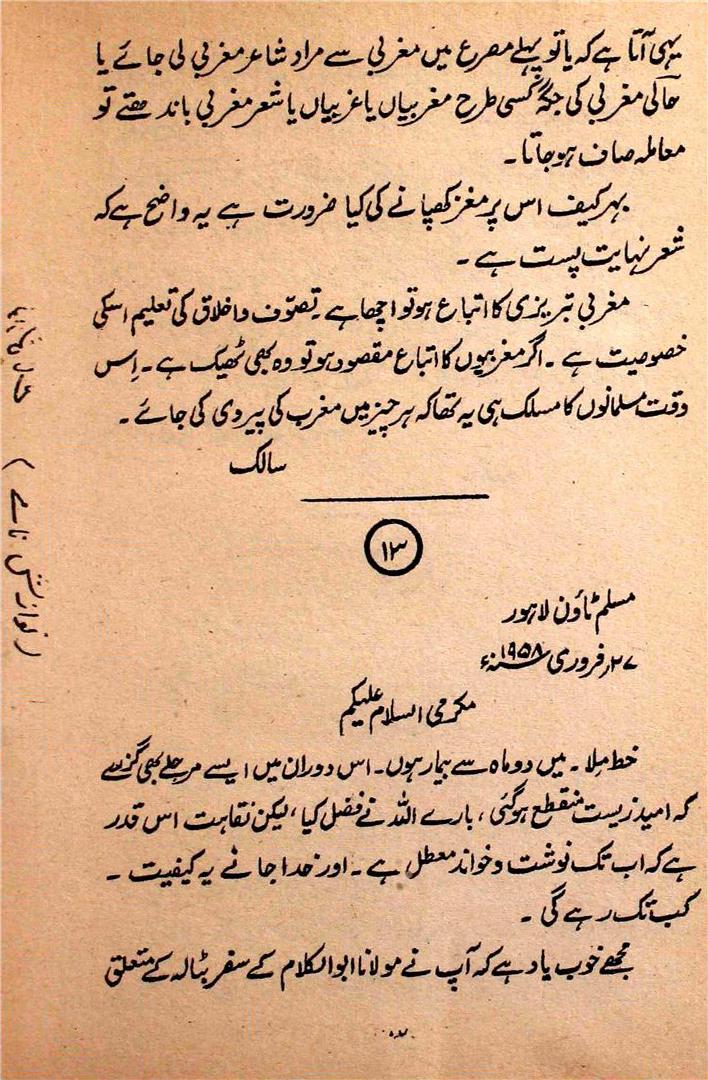 یہی آتا ہے کہ یا تو پہلے مصرع میں مغربی سے مراد شاعر مغربی لی جائے یا
حالی مغربی کی جگہ کسی طرح مغربیاں یا غربیاں یا شعر مغربی باندھتے تو
معاملہ صاف ہو جاتا۔
بہر کیف اس پر مغز کھپانے کی کیا ضرورت ہے یہ واضح ہے کہ
شعر نہایت پست ہے۔
مغربی تبریزی کا اتباع ہو تو اچھا ہے۔ تصوّف و اخلاق کی تعلیم اسکی
خصوصیت ہے۔ اگر مغربیوں کا اتباع مقصود ہو تو وہ بھی ٹھیک ہے۔ اِس
وقت مسلمانوں کا مسلک ہی یہ تھا کہ ہر چیز میں مغرب کی پیروی کی جائے۔
سالک
۱۳
مسلم ٹاؤن لاہور
۲۷ر فروری ۱۹۵۸ء
مکرمی السلام علیکم
خط مِلا۔ میں دو ماہ سے بیمار ہوں۔ اس دوران میں ایسے مرحلے بھی گزرے
کہ امید زیست منقطع ہو گئی، بارے اللہ نے فضل کیا، لیکن نقاہت اس قدر
ہے کہ اب تک نوشت و خواند معطل ہے۔ اور خدا جانے یہ کیفیت ۔
کب تک رہے گی ۔
مجھے خوب یاد ہے کہ آپ نے مولانا ابوالکلام کے سفر بٹالہ کے متعلق
(نوازش نامے)